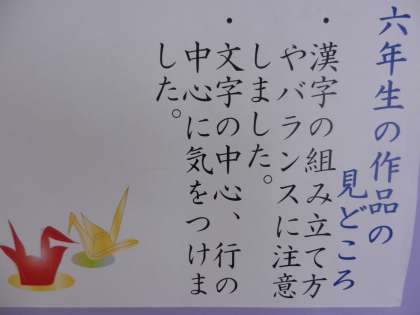 六年生の作品の
見どころ
・漢字の組み立て方
やバランスに注意
しました。
・文字の中心、行の
中心に気をつけま
した。